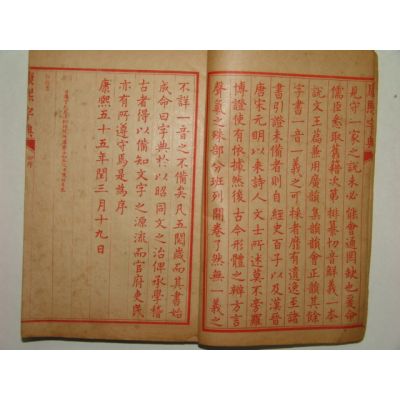 康熙字典
見守一家之說未必能會通罔缺也爰命
儒臣悉取舊籍次第排纂切音解義一本
說文玉篇兼用廣韻集韻韻會正韻其餘
字書一音一義之可採者靡有遺逸至諸
書引證未備者則自經史百子以及漢晉
唐宋元明以來詩人文士所述莫不旁羅
博證使有依據然後古今形體之辨方言
聲氣之殊部分班列開卷了然無一義之
不詳一音之不備矣凡五閱歲而其書始
成命曰字典於以昭同文之治俾承學稽
古者得以備知文字之源流而官府吏民
亦有所遵守焉是為序
康熙五十五年閏三月十九日
康熙字典